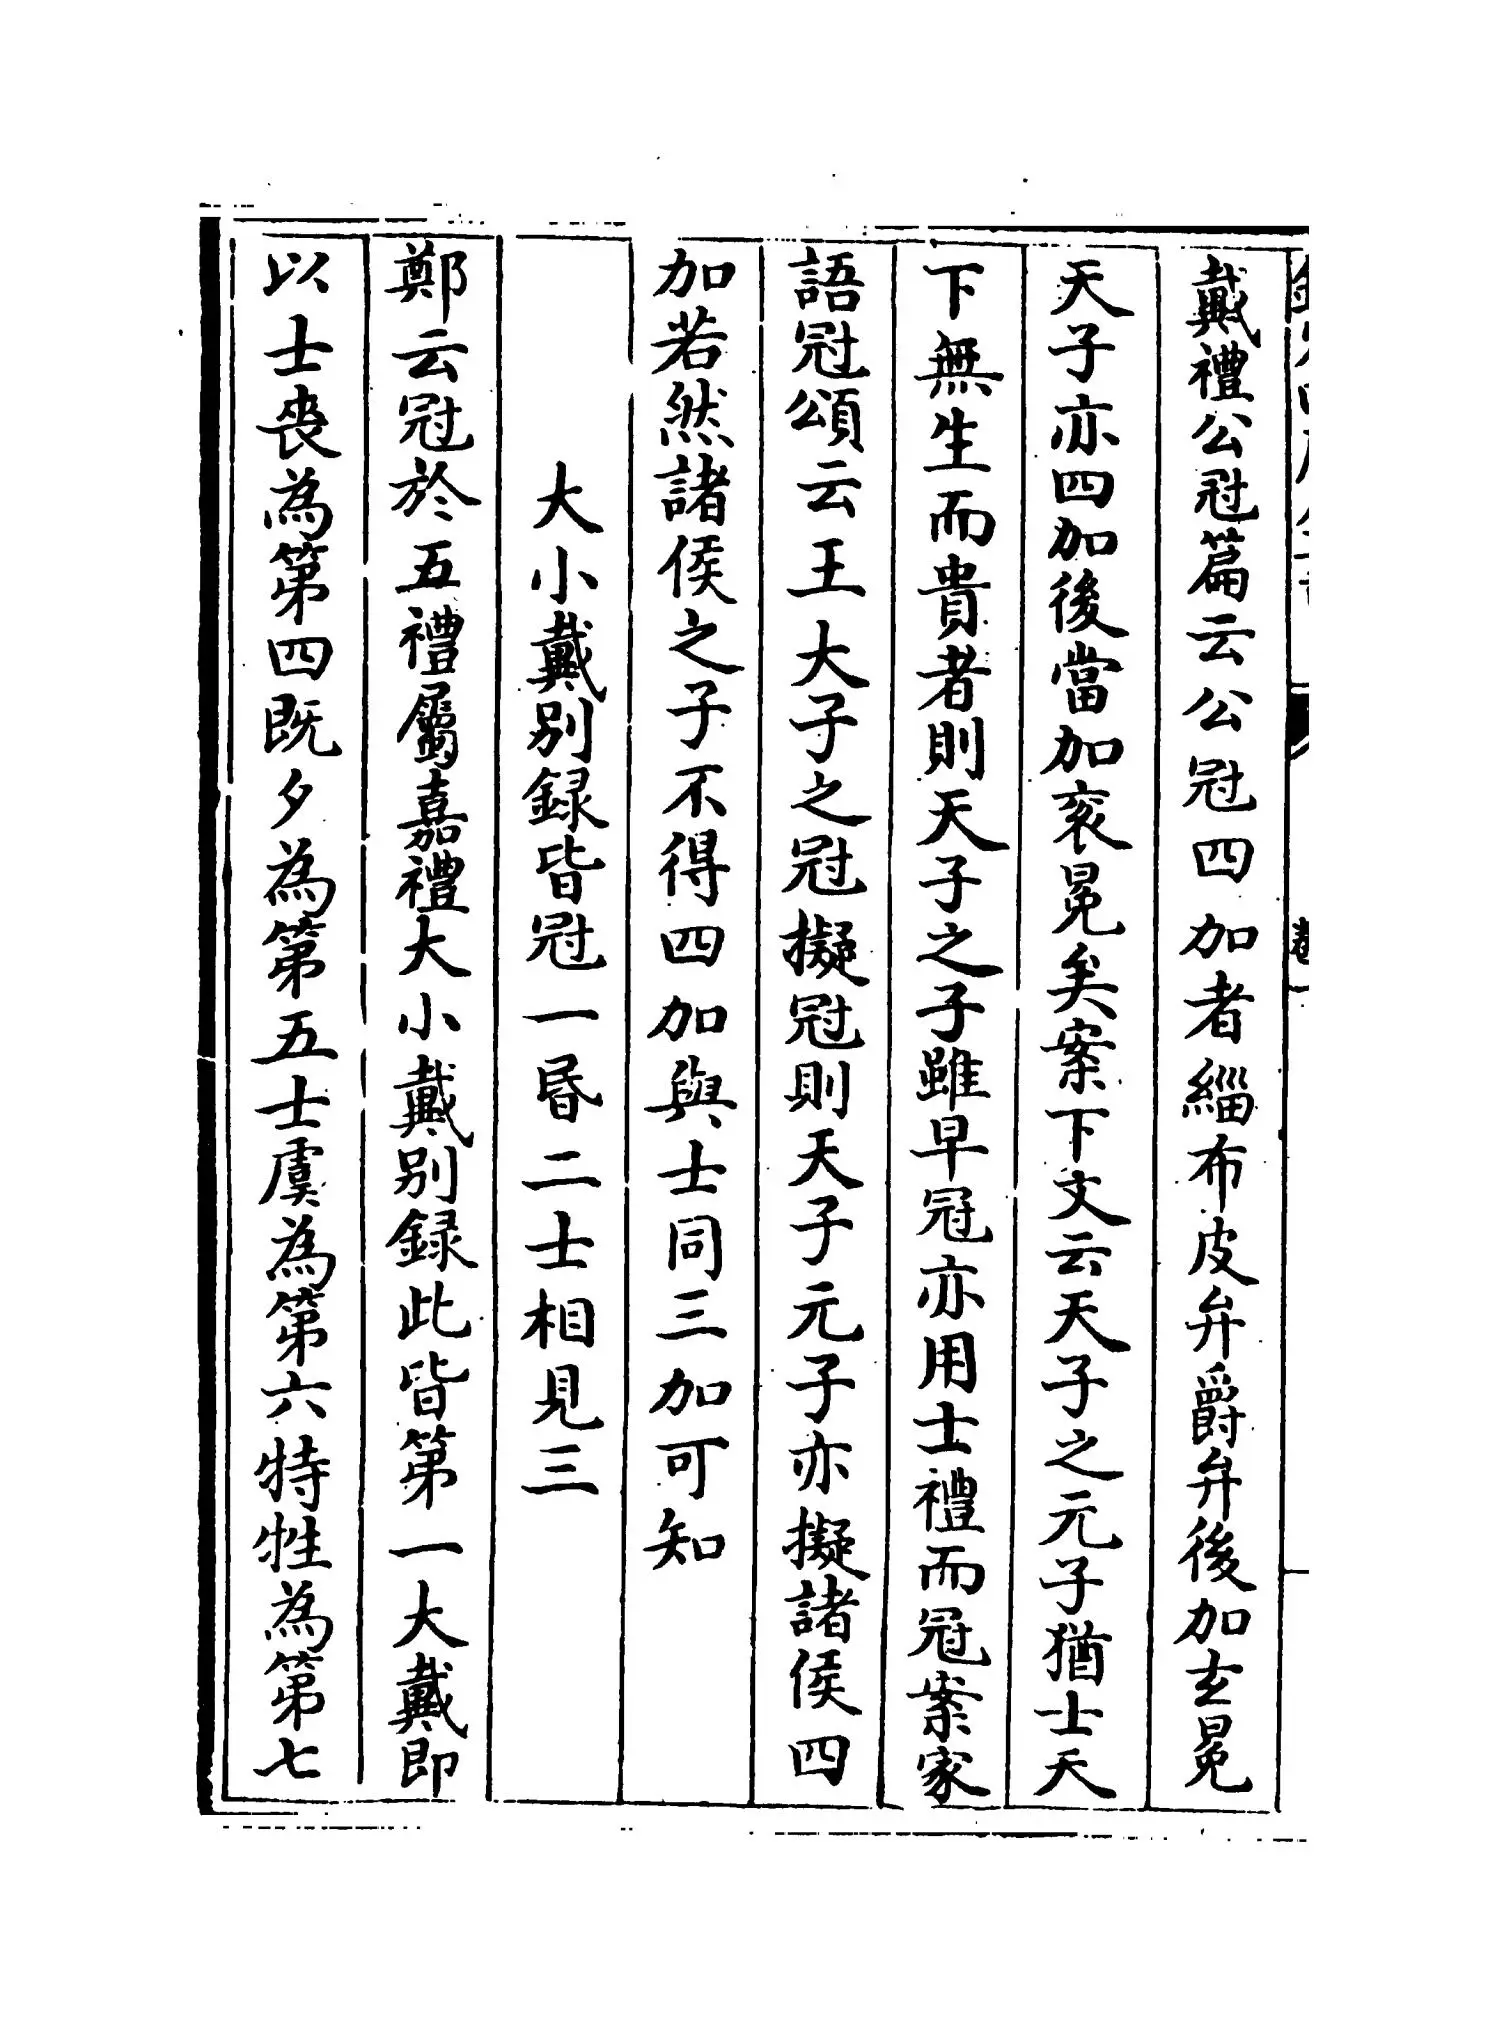 戴禮公冠篇云公冠四加者緇布皮弁爵弁後加玄冕
天子亦四加後當加衮冕矣案下文云天子之元子猶士天
下無生而貴者則天子之子雖早冠亦用士禮而冠案家
語冠頌云王大子之冠擬冠則天子元子亦擬諸侯四
加若然諸侯之子不得四加與士同三加可知
大小戴别録皆冠一昏二士相見三
鄭云冠於五禮屬嘉禮大小戴别録此皆第一大戴即
以士喪為第四既夕為第五士虞為第六特牲為第七